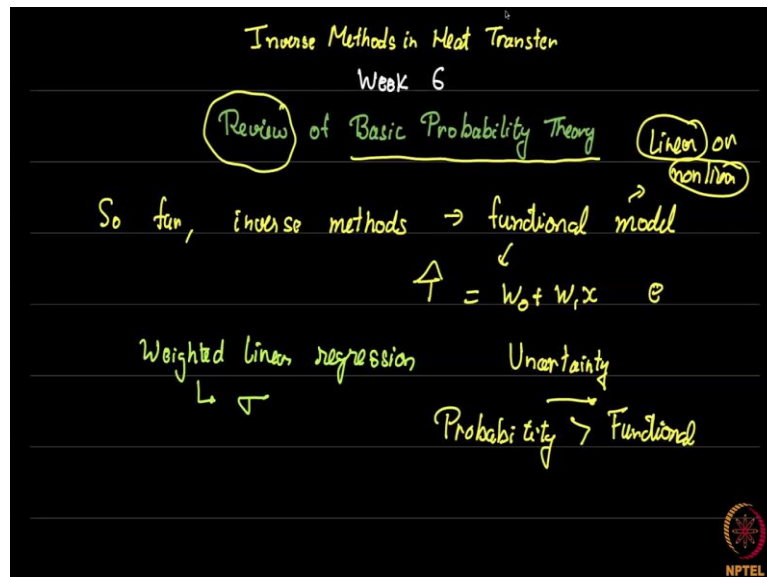 Inverse Methods in Heat Transfer
Week 6
Review of Basic Probability Theory (Linear or
nonlinear
So far, inverse methods → functional model
T = w₀ + w₁x e
Weighted linear regression Uncertainty
↳ σ
Probability > Functional
NPTEL